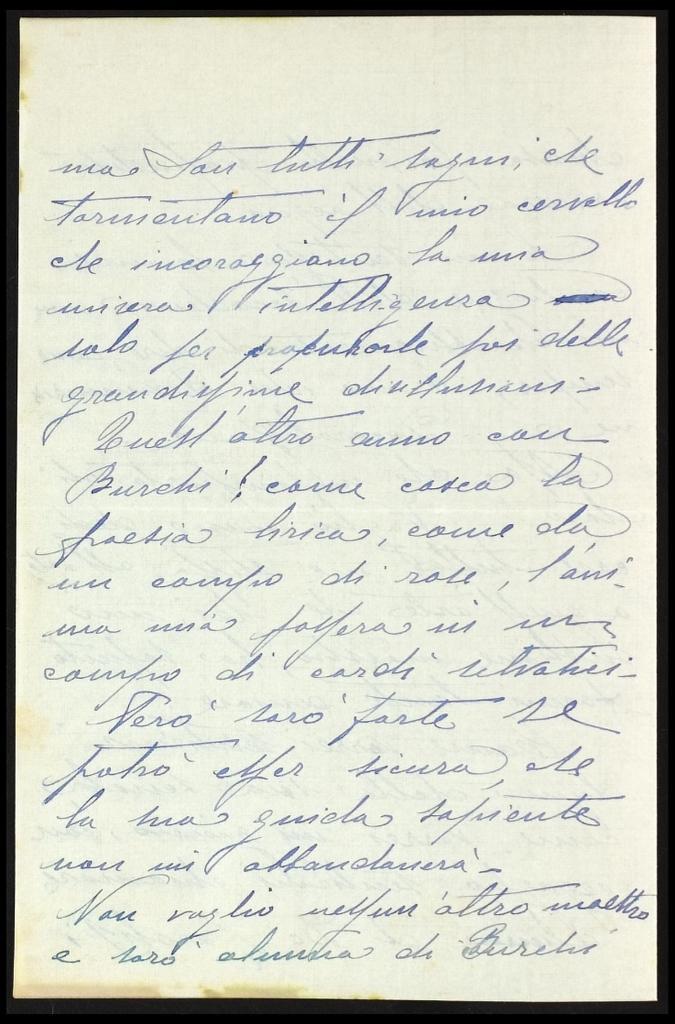 ma son tutti sogni, che
tormentano il mio cervello
che incoraggiano la mia
misera intelligenza
solo per procurarle poi delle
grandissime disillusioni -
Quest'altro anno con
Burchi! come cosca la
poesia lirica, come da
un campo di rose, l'ani-
ma mia passerà in un
campo di cardi selvatici -
Però sarò forte se
potrò esser sicura, che
la sua guida sapiente
non mi abbandonerà -
Non voglio nessun'altro maestro
e sarò alunna di Burchi